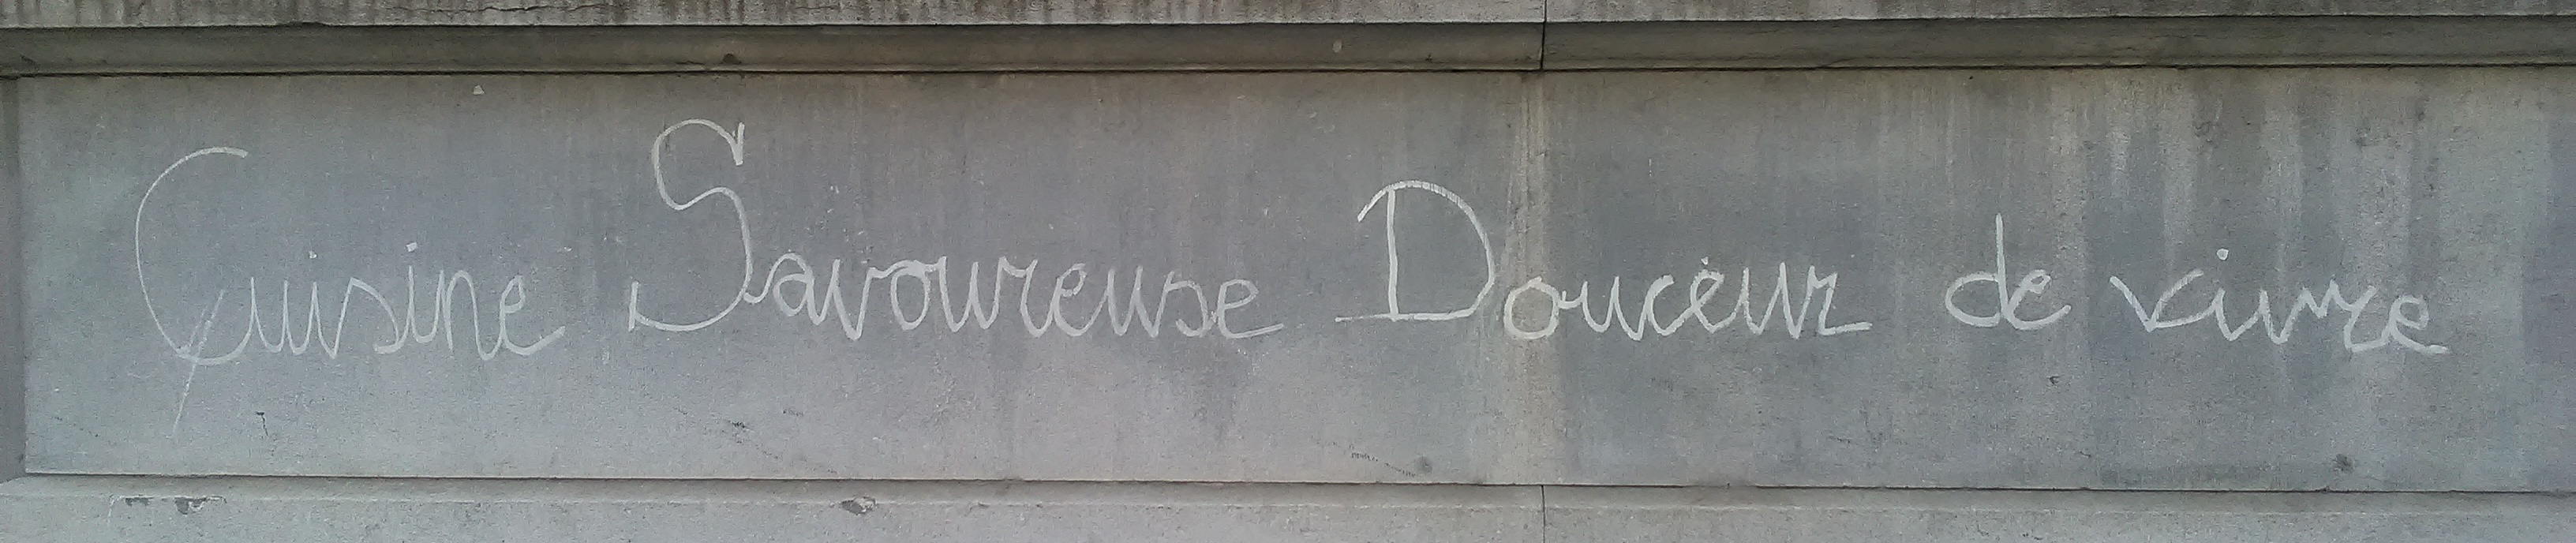 Cuisine Savoureuse Douceur de vivre